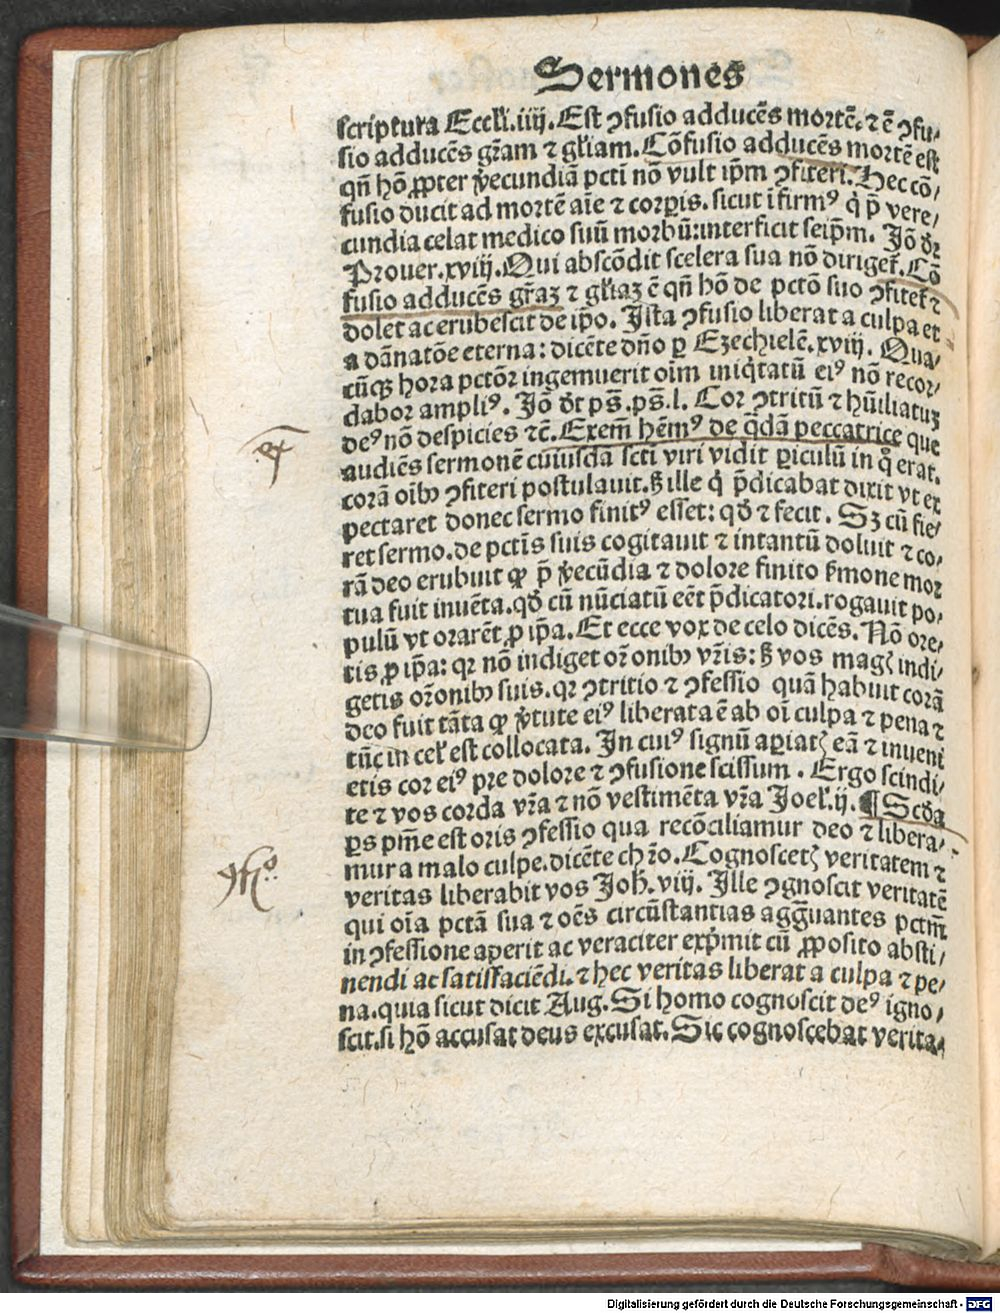 Sermones
scriptura Eccłi.iiij.Est ꝯfusio adducẽs mortẽ.⁊ ẽ ꝯfu⸗
sio adducẽs gr̃am ⁊ gl̃iam.Cõfusio adducẽs mortẽ est
qñ hõ ꝓpter v̾ecundiã pcti nõ vult ip̃m ꝯfiteri.Hec cõ⸗
fusio ducit ad mortẽ aĩe ⁊ corꝑis.sicut ĩfirmꝰ q̇ p̃ vere⸗
cundia celat medico suũ morbũ:interficit seip̃m. Jõ dr̃
Prouer.xviij.Qui abscõdit scelera sua nõ diriget̃.Cõ
fusio adducẽs gr̃aꝫ ⁊ gl̃iaꝫ ẽ qñ hõ de pctõ suo ꝯfitet̃ ⁊
dolet ac erubescit de ip̃o. Jsta ꝯfusio liberat a culpa et
a dãnatõe eterna: dicẽte dño ꝑ Ezechielẽ.xviij. Qua⸗
cũqꝫ hora pctõꝛ ingemuerit oĩm iniq̇tatũ eiꝰ nõ recoꝛ⸗
dabor ampliꝰ. Jõ dt̃ ps̃.ps̃.l. Cor ꝯtritũ ⁊ hũiliatuꝫ
deꝰ nõ despicies ⁊c̃.Exem̃ hẽmꝰ de q̇dã peccatrice que
audiẽs sermonẽ cuiusdã scti viri vidit ꝑiculũ in q̇ erat.
corã oĩbꝰ ꝯfiteri postulauit.ẞ ille q̇ p̃dicabat dixit vt ex
pectaret donec sermo finitꝰ esset: qd̃ ⁊ fecit. Sꝫ cũ fie⸗
ret sermo.de pctĩs suis cogitauit ⁊ intantũ doluit ⁊ co⸗
rã deo erubuit ꝙ p̃ v̾ecũdia ⁊ dolore finito s̾mone moꝛ
tua fuit inuẽta.qd̃ cũ nũciatũ eẽt p̃dicatori.rogauit po⸗
pulũ vt orarẽt ꝓ ip̃a. Et ecce vox de celo dicẽs. Nõ ore⸗
tis ꝓ ip̃a: qꝛ nõ indiget or̃onibꝰ vr̃is: ẞ vos magꝭ indi⸗
getis or̃onibꝰ suis.qꝛ ꝯtritio ⁊ ꝯfessio quã habuit corã
deo fuit tãta ꝙ v̾tute eiꝰ liberata ẽ ab oĩ culpa ⁊ pena ⁊
tũc in cel̃ est collocata. Jn cuiꝰ signũ aꝑiatꝭ eã ⁊ inueni
etis cor eiꝰ pre dolore ⁊ ꝯfusione scissum . Ergo scindi⸗
te ⁊ vos corda vr̃a ⁊ nõ vestimẽta vr̃a Joel̃.ij. ¶Scd̃a
ꝑs pm̃e est oris ꝯfessio qua recõciliamur deo ⁊ libera⸗
mur a malo culpe.dicẽte chr̃o.Cognoscetꝭ veritatem ⁊
veritas liberabit vos Joh̃.viij. Jlle ꝯgnoscit veritatẽ
qui oĩa pctã sua ⁊ oẽs circũstantias aggr̃uantes pctm̃
in ꝯfessione aperit ac veraciter exp̃mit cũ ꝓposito absti⸗
nendi ac satisfaciẽdi.⁊ hec veritas liberat a culpa ⁊ pe⸗
na.quia sicut dicit Aug.Si homo cognoscit deꝰ igno⸗
scit.si hõ accusat deus excusat.Sic cognoscebat verita⸗
Digitalisierung gefördert durch die Deutsche Forschungsgemeinschaft - DFG